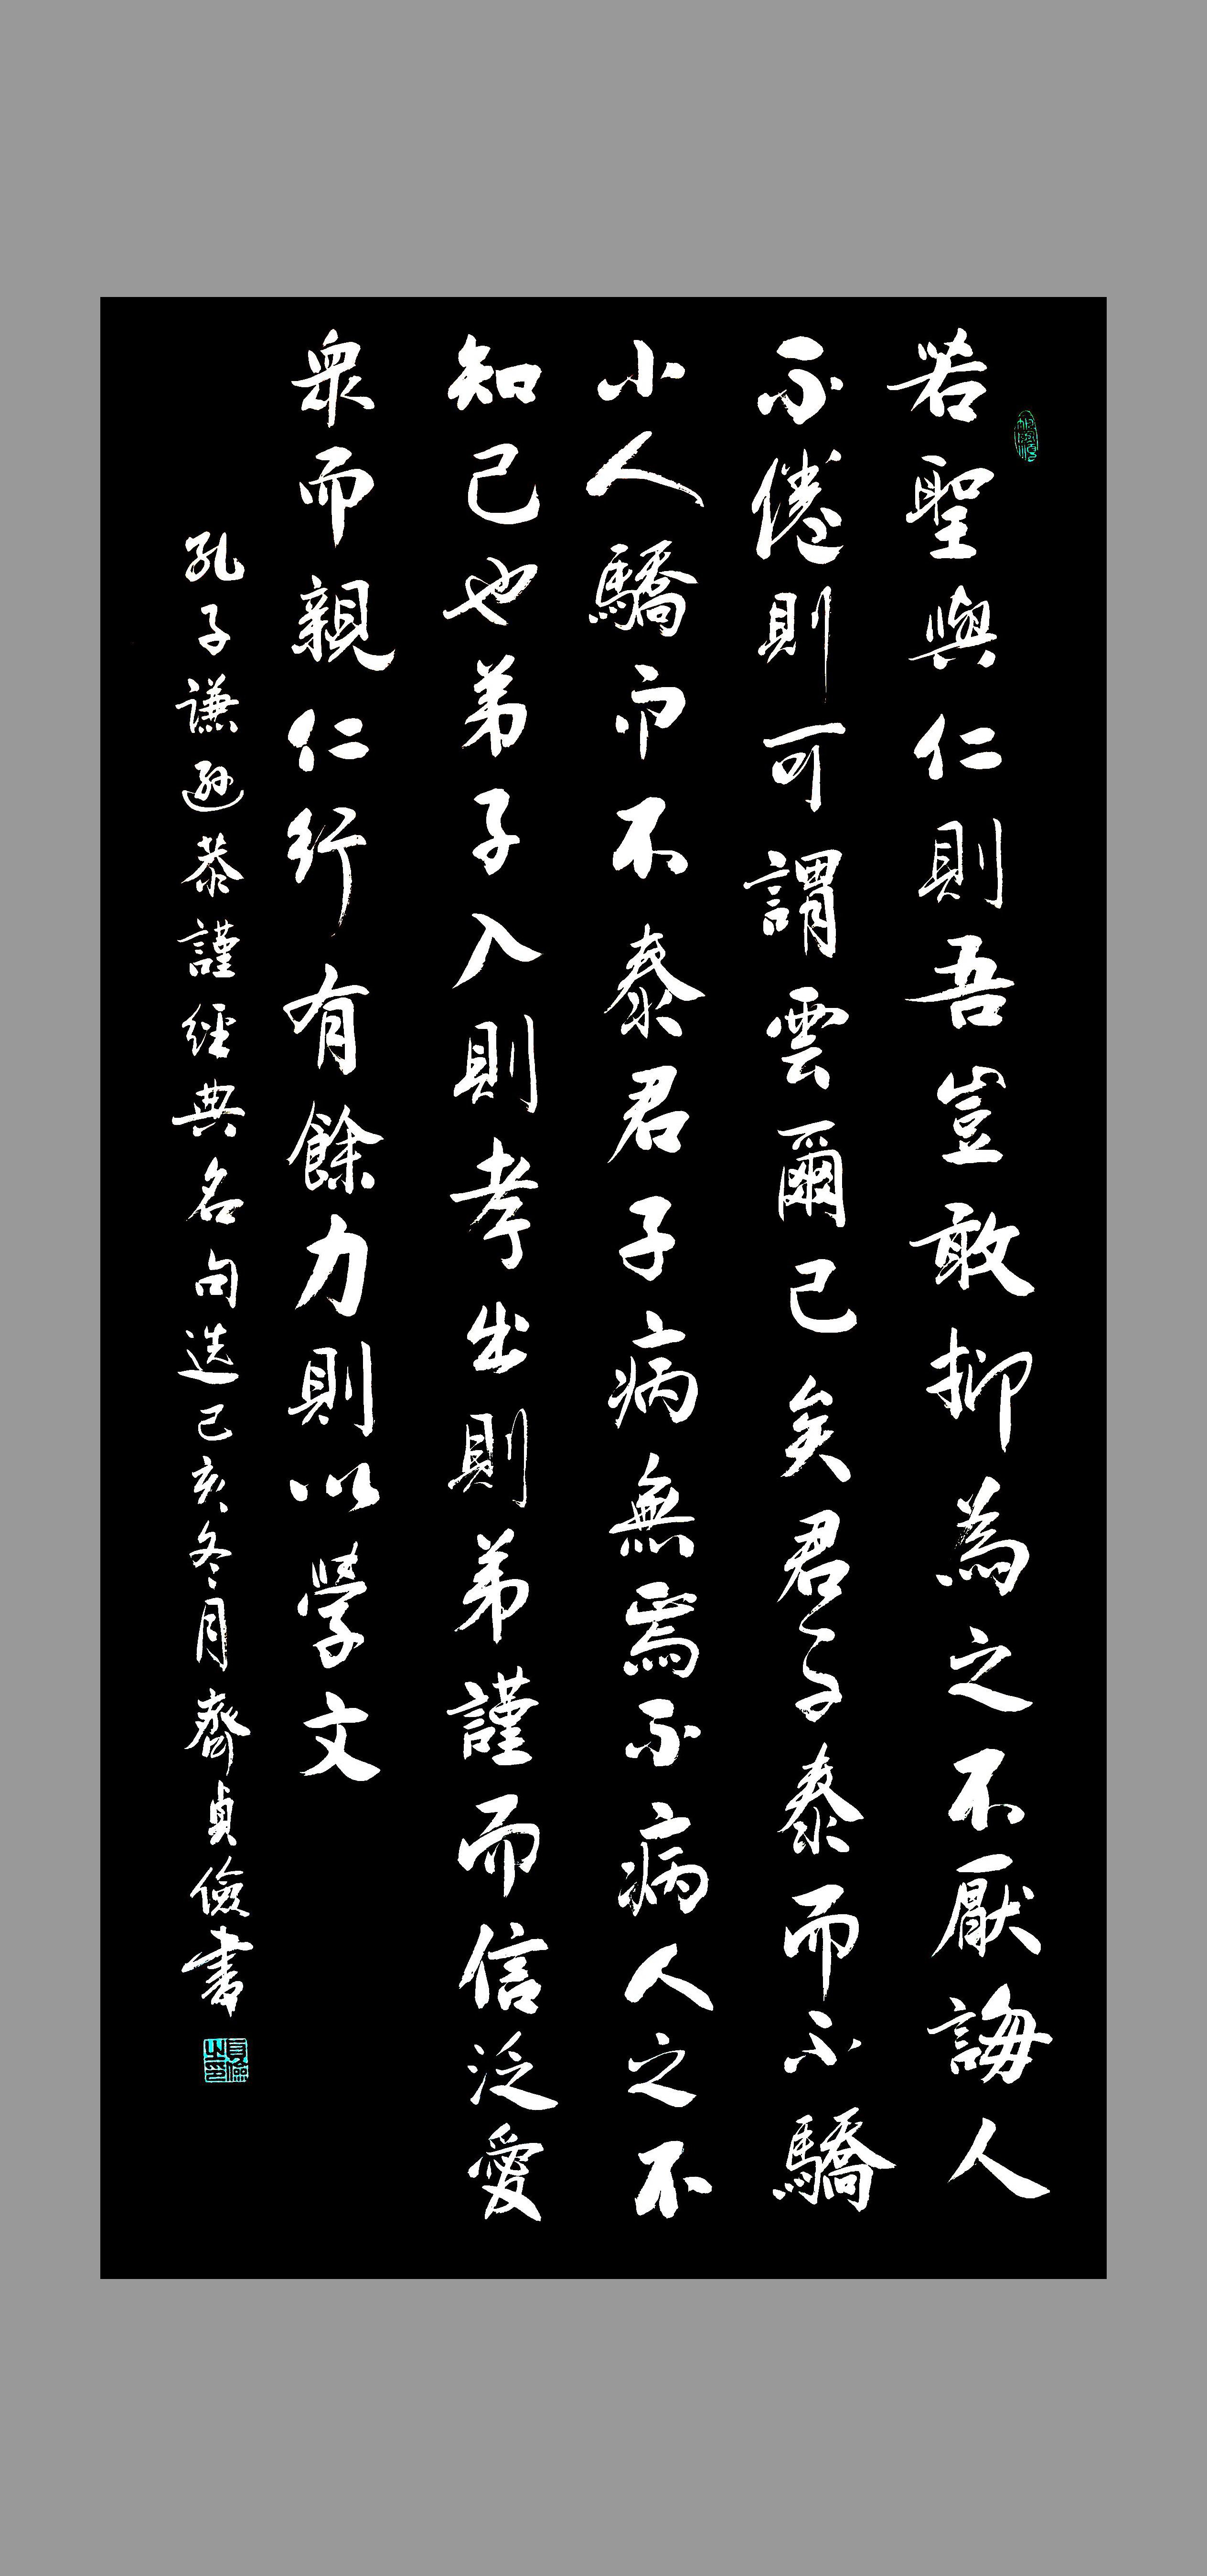 若聖與仁則吾豈敢抑為之不厭誨人
不倦則可謂雲爾已矣君子泰而不驕
小人驕而不泰君子病無焉不病人之不
知己也弟子入則孝出則弟謹而信泛愛
衆而親仁行有餘力則以學文
孔子謙遜恭謹經典名句选己亥冬月齊貞儉書
貞儉之印